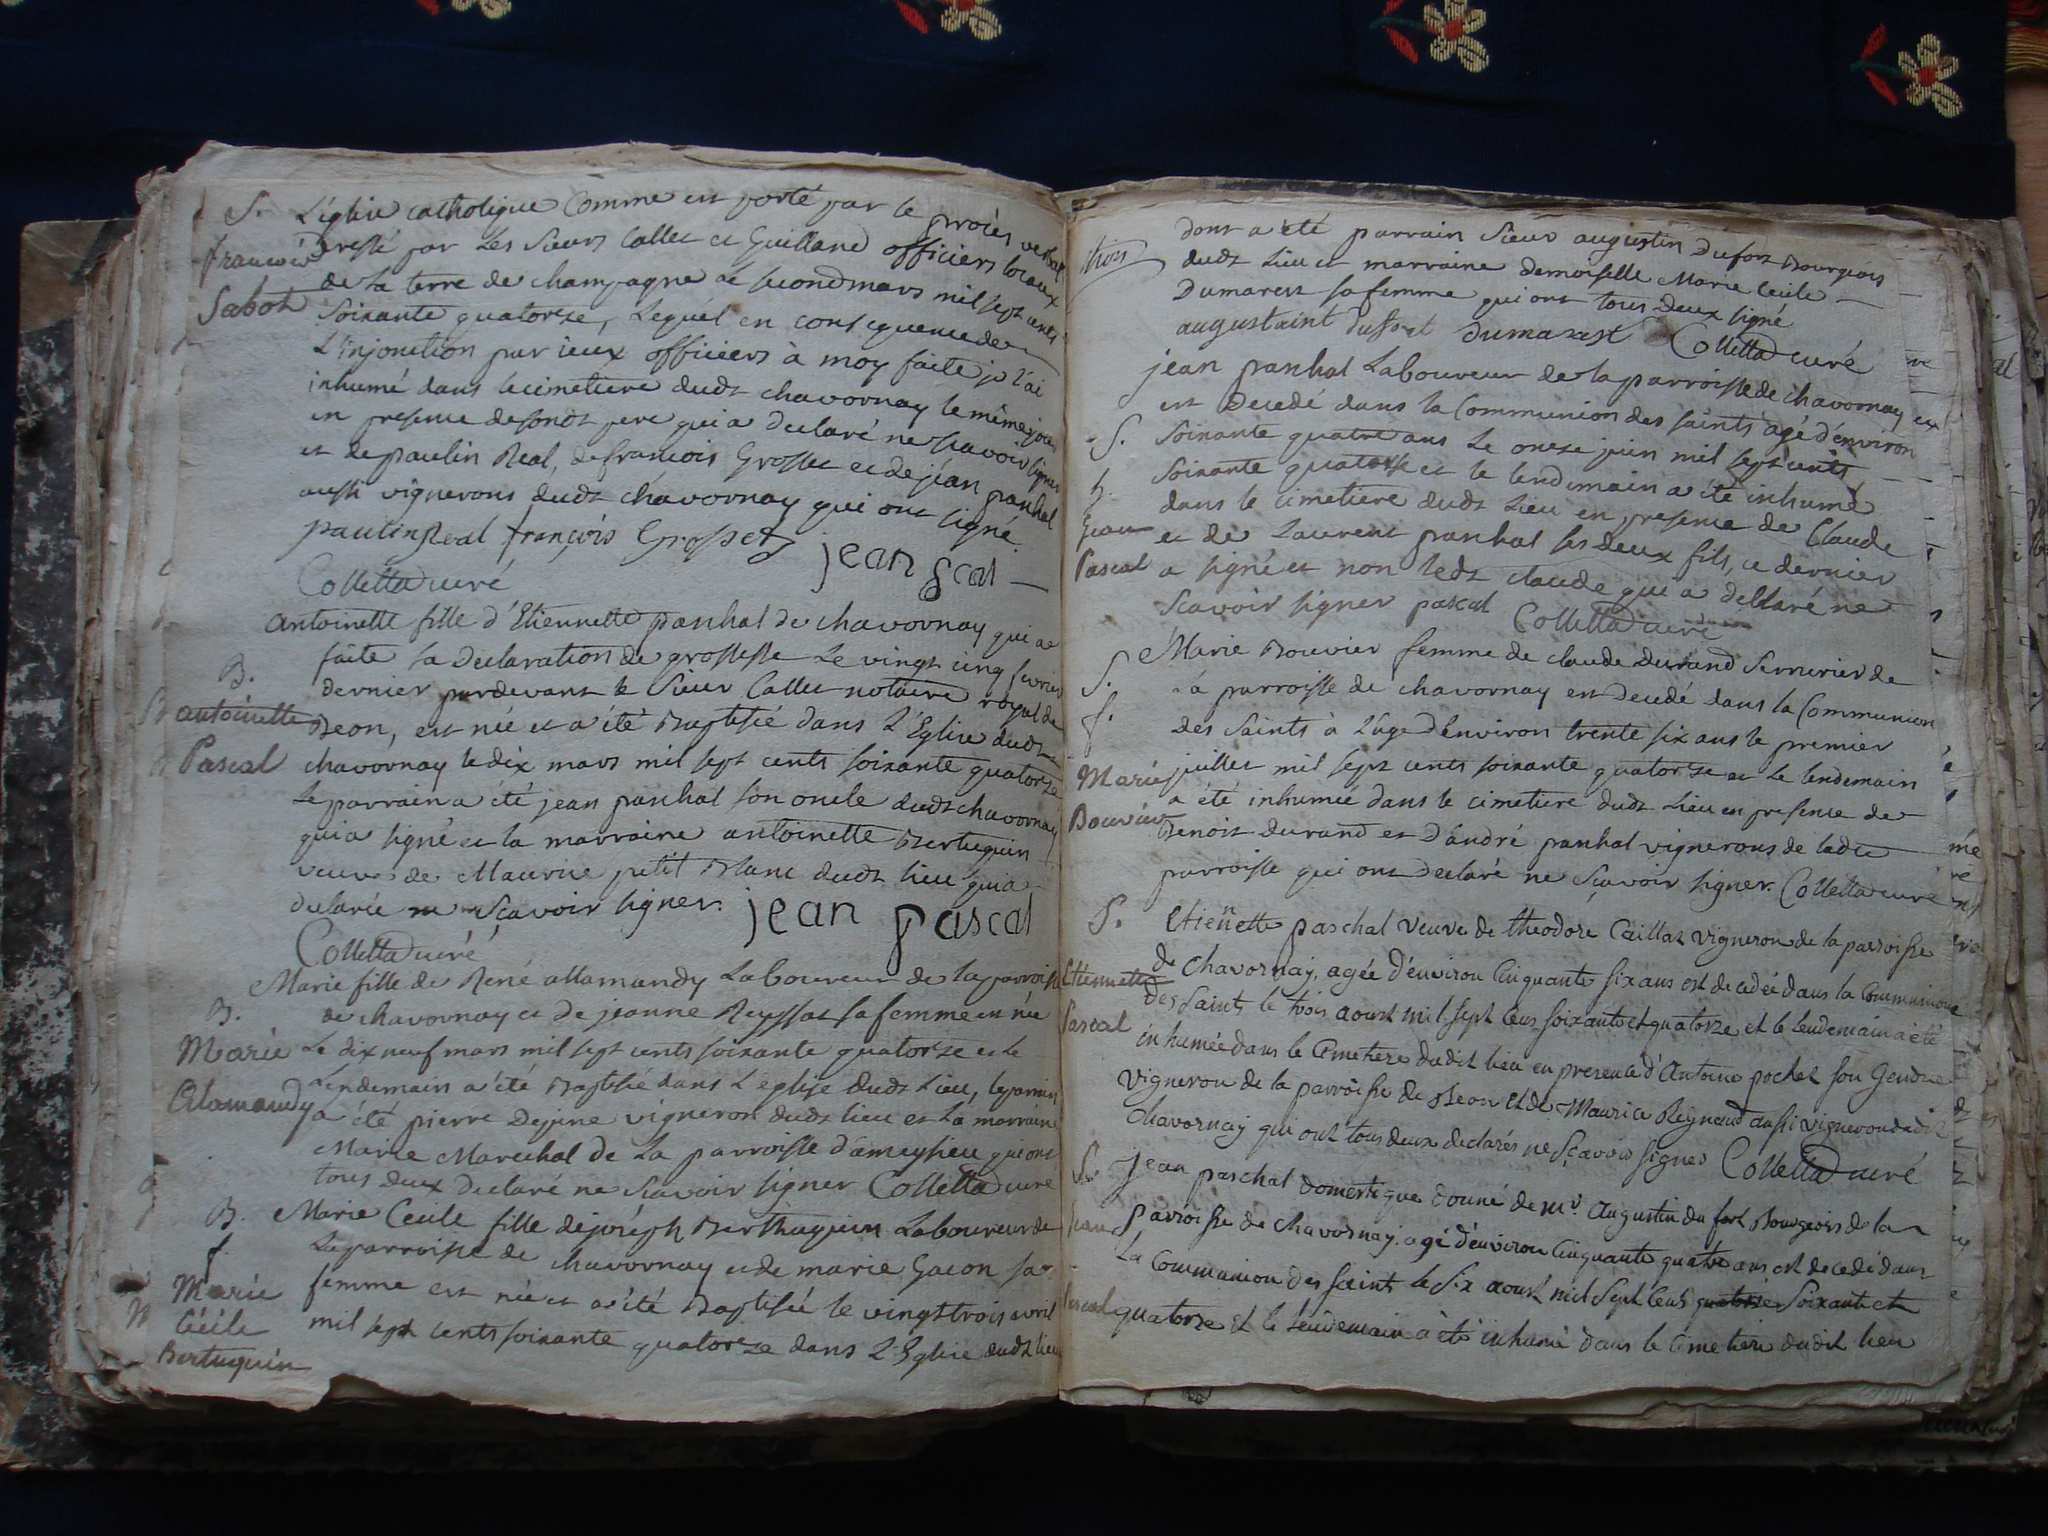 S.
françois
Sabot
L'église catholique Comme est porté par le procès verbal
dressé par Les Sieurs Callet et Guilland officiers locaux
de la terre de champagne Le second mars mil sept cents
Soixante quatorze, Lequel en consequence de
L'injonction par iceux officiers à moy faite je l'ai
inhumé dans le cimetiere dudt chavornay le même jour
en presence de sondt pere qui a declaré ne scavoir signer
et de paulin Real, de francois Grosset et de jean paschal
aussi vignerons dudt chavornay qui ont signé.
paulin Real françois Grosset jean pcal
Colletta curé
B.
antoinette
Pascal
antoinette fille d'Etiennette paschal de chavornay qui a
faite sa Declaration de grossesse Le vingt cinq fevrier
dernier pardevant le Sieur Callet notaire royal de
Beon, est née et a été Baptisée dans L'Eglise dudt
chavornay le dix mars mil sept cents soixante quatorze
Le parrain a été jean paschal son oncle dudt chavornay
qui a signé et la marraine antoinette Bertuquin
veuve de Maurice petit Blanc dudt lieu qui a
declarée ne Scavoir signer. jean pascal
Colletta curé
B.
Marie
Alamandy
Marie fille de René allamandy Laboureur de la parroisse
de chavornay et de jeanne Reyssat sa femme est née
Le dix neuf mars mil sept cents soixante quatorze et le
Lendemain a été Baptisée dans L'eglise dudt Lieu, le parrain
a été pierre Dejene vigneron dudt lieu et La marraine
Marie Marechal de La parroisse d'ameysieu qui ont
tous deux declaré ne Scavoir signer Colletta curé
B.
f.
Marie
Cécile
Bertuquin
Marie Cecile fille de joseph Berthuquin Laboureur de
La parroisse de chavornay et de marie Gacon sa
femme est née et a été Baptisée le vingt trois avril
mil sept cents soixante quatorze dans L'Eglise dudt lieu
dont a été parrain Sieur augustin Dufort Bourgeois
dudt Lieu et marraine demoiselle Marie Cecile
Dumarest sa femme qui ont tous deux signé
augustaint duffort dumarest Colletta curé
S.
h.
Jean
Pascal
jean paschal Laboureur de la parroisse de chavornay
est Decedé dans la Communion des saints agé d'environ
soixante quatre ans Le onze juin mil sept cents
soixante quatorze et le lendemain a été inhumé
dans le cimetiere dudt Lieu en presence de Claude
et de Laurent paschal ses deux fils, ce dernier
a signé et non ledt claude qui a declaré ne
Scavoir signer pascal Colletta curé
S.
f.
Marie
Bouvier
Marie Bouvier femme de claude Durand Serrurier de
la parroisse de chavornay est Decedé dans la Communion
des Saints à L'age d'environ trente six ans le premier
juillet mil sept cents soixante quatorze et Le lendemain
a été inhumée dans le cimetiere dudt Lieu en presence de
Benoit Durand et d'andré paschal vignerons de ladte
parroisse qui ont declaré ne Scavoir signer. Colletta curé
S.
Etiennette
Pascal
Etieñette paschal veuve de theodore Caillat vigneron de la parroisse
de Chavornay, agée d'environ Cinquante six ans est decedée dans la Communion
des Saints le trois aoust mil sept Cens soixante et quatorze et le Lendemain a été
inhumée dans le Cimetiere dudit lieu en presence d'Antoine pochet son Gendre
vigneron de la parroisse de Beon et de Maurice Reynaud aussi vigneron dudit
Chavornay qui ont tous deux declarés ne Sçavoir signer Colletta curé
S.
jean
Pascal
Jean paschal domestique donné de mr. Augustin du fort Bourgeois de la
Parroisse de Chavornay, agé d'environ Cinquante quatre ans est decedé dans
La Communion des Saint le Six aoust mil Sept Cens quatorze Soixante et
quatorze et le lendemain a été inhumé dans le Cimetiere dudit lieu